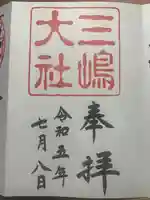 奉拝
三嶋
大社
令和五年
七月八日